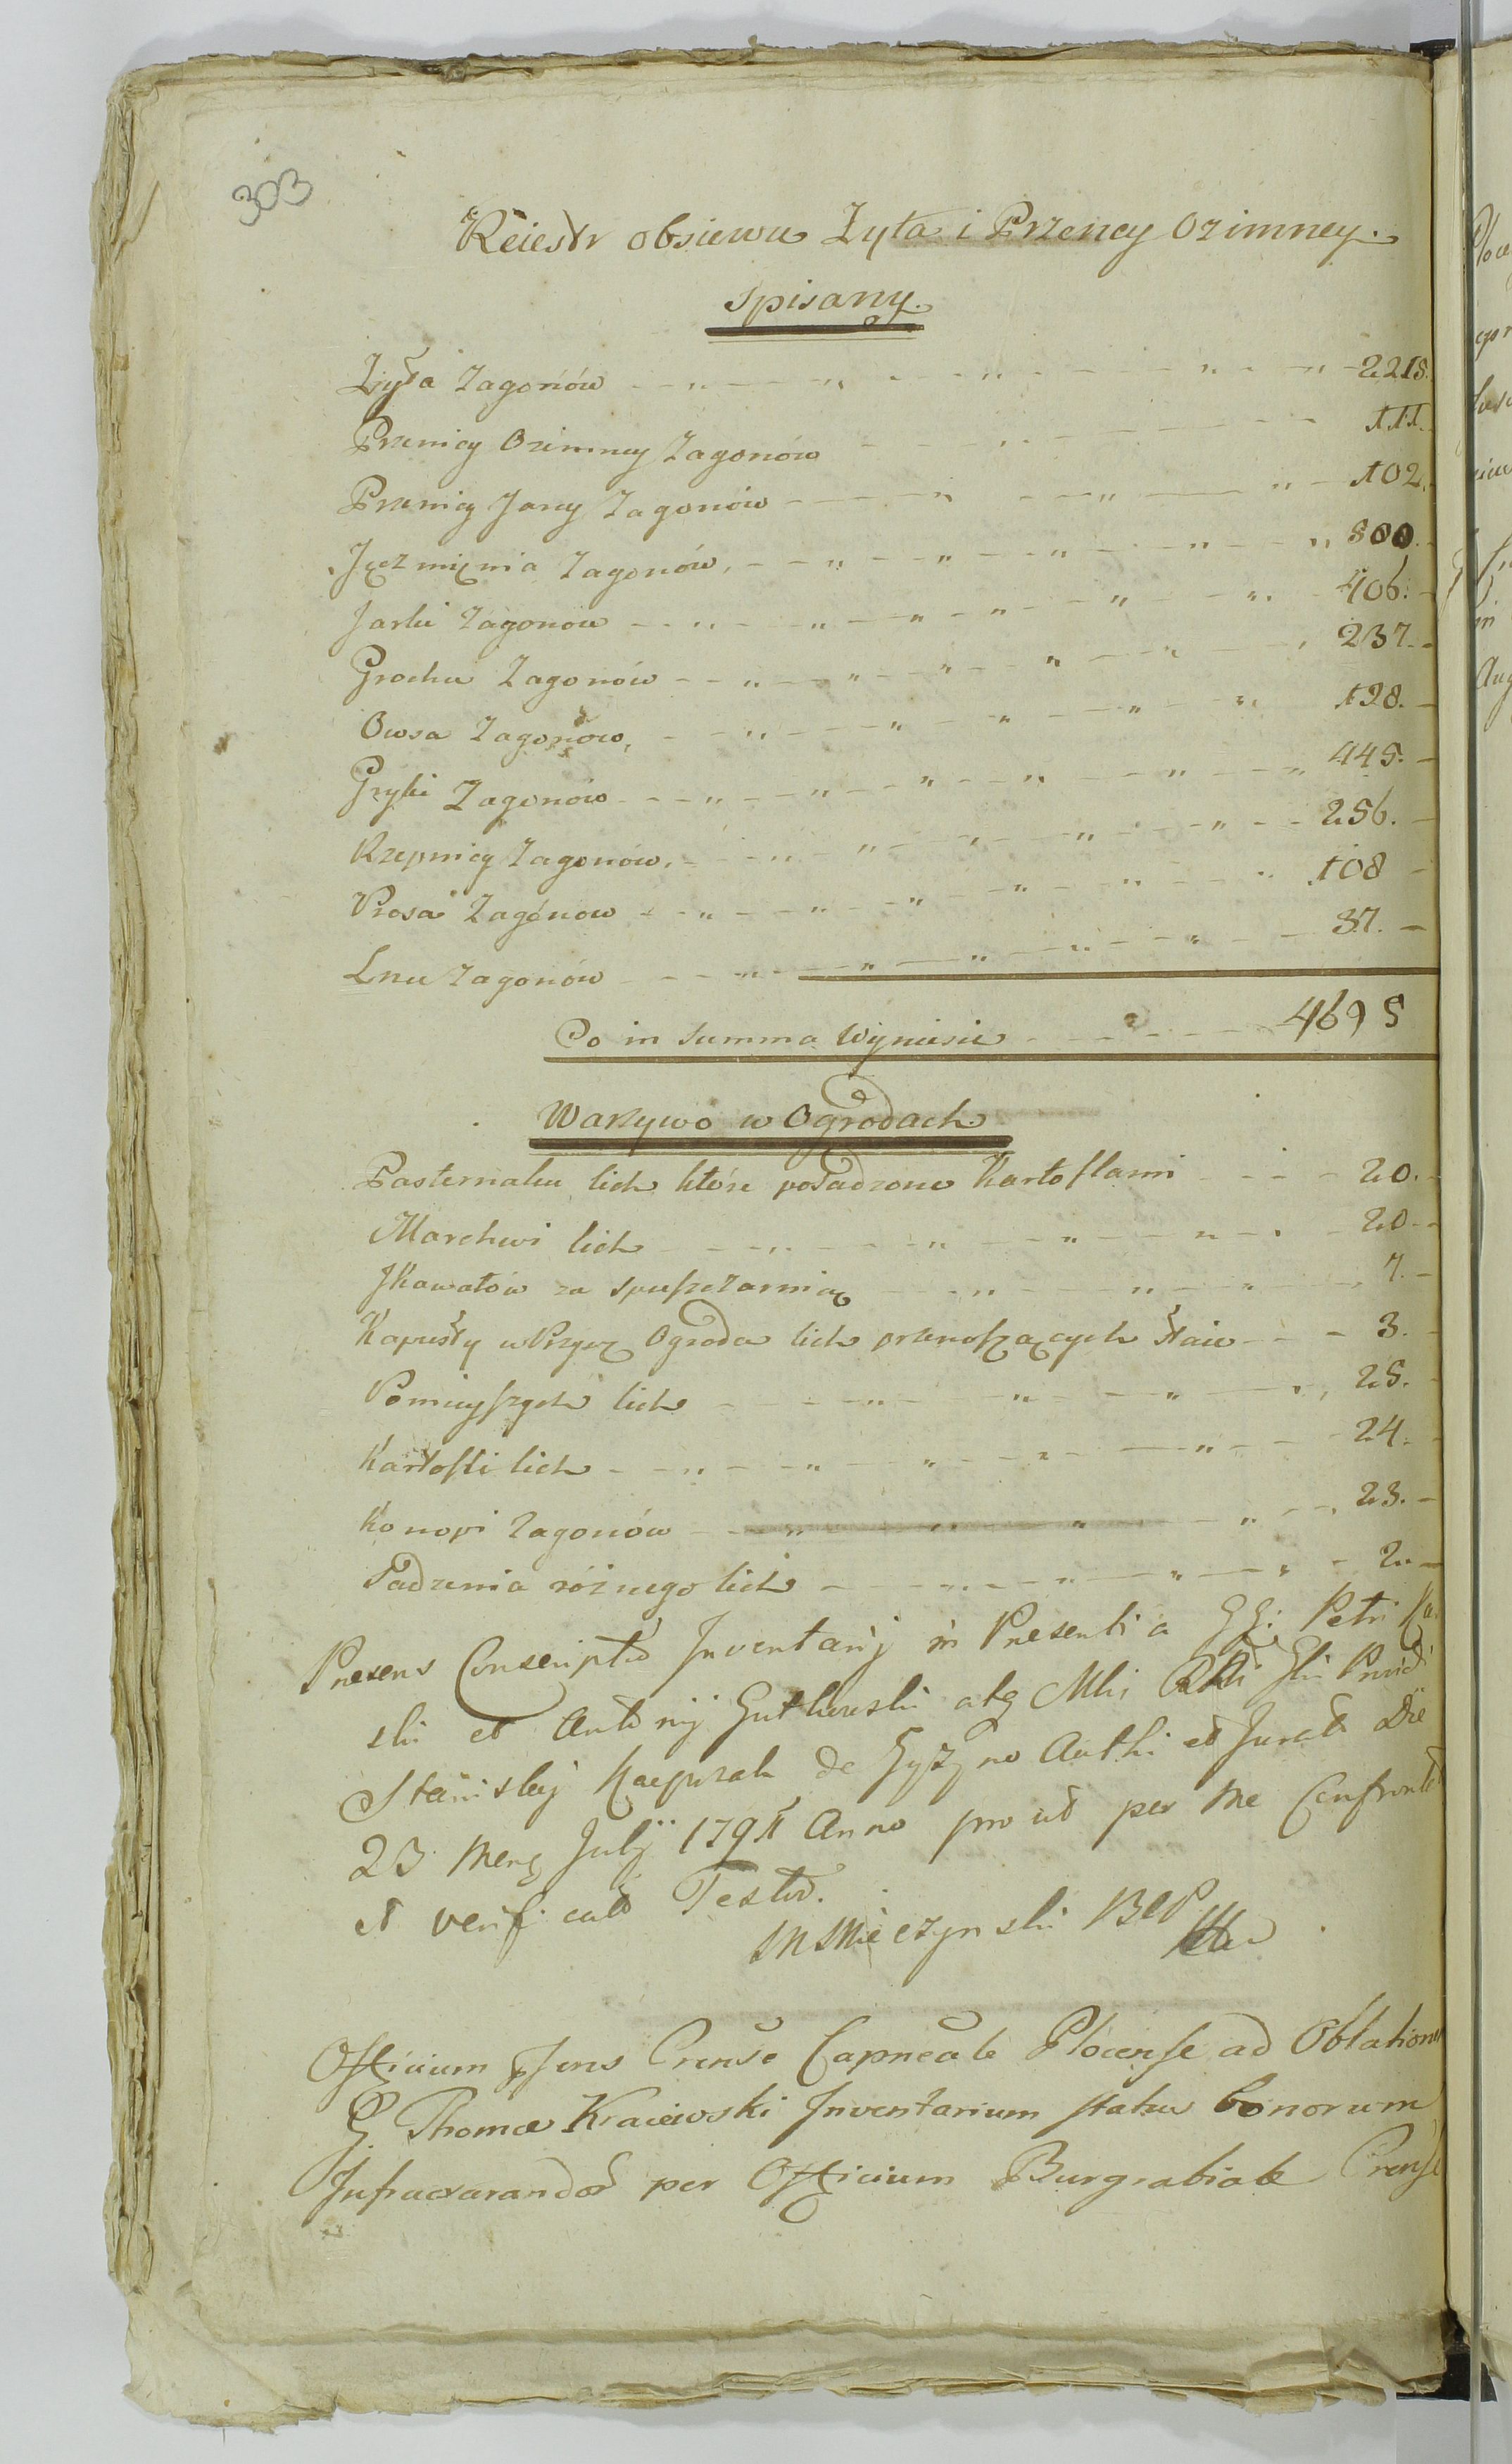 303
Reiestr obsiewu Zyta i Przenicy Ozimney.
Spisany.
Zyta Zagonów 2215.
Przenicy Ozimney Zagonów 111.
Przenicy Jarey Zagonów 102.
Jęczmięnia Zagonów, 800.
Jarki Zagonów 406.
Grochu Zagonów 237.
Owsa Zagonów, 128.
Gryki Zagonów 445.
Rzepnicy Zagonów, 256.
Prosa Zagónow 108
Lnu Zagonów 37.
Co in Summa Wyniesie 4695
Warzywo w Ogrodach
Pasternaku lich które posadzono Kartoflami 20.
Marchwi lich 20
Jkawałów za spuszczarnią 7.
Kapusty Ogroda lich przenoszących Staie 3.
Pomieyszych lich 25.
Kartofli lich 24.
Konopi Zagonów 23.
Sadzenia różnego lich 2
Presens Conscriptio Inventarij in Presentia GG: Petri
ski et Antonij Gutkowski atq
Stanislaj Kacprzak de Gyzyno et Jurat Die
23 Mens Julij 1791 Anno prout per me Confrontat
et verificat Testor.
Mieczynski BCP
Officium Crense Capneale Plocense ad Oblationem
G Thomae Kraiewski Inventarium status bonorum
Infraexarandor per Officium Burgrabiale Crense